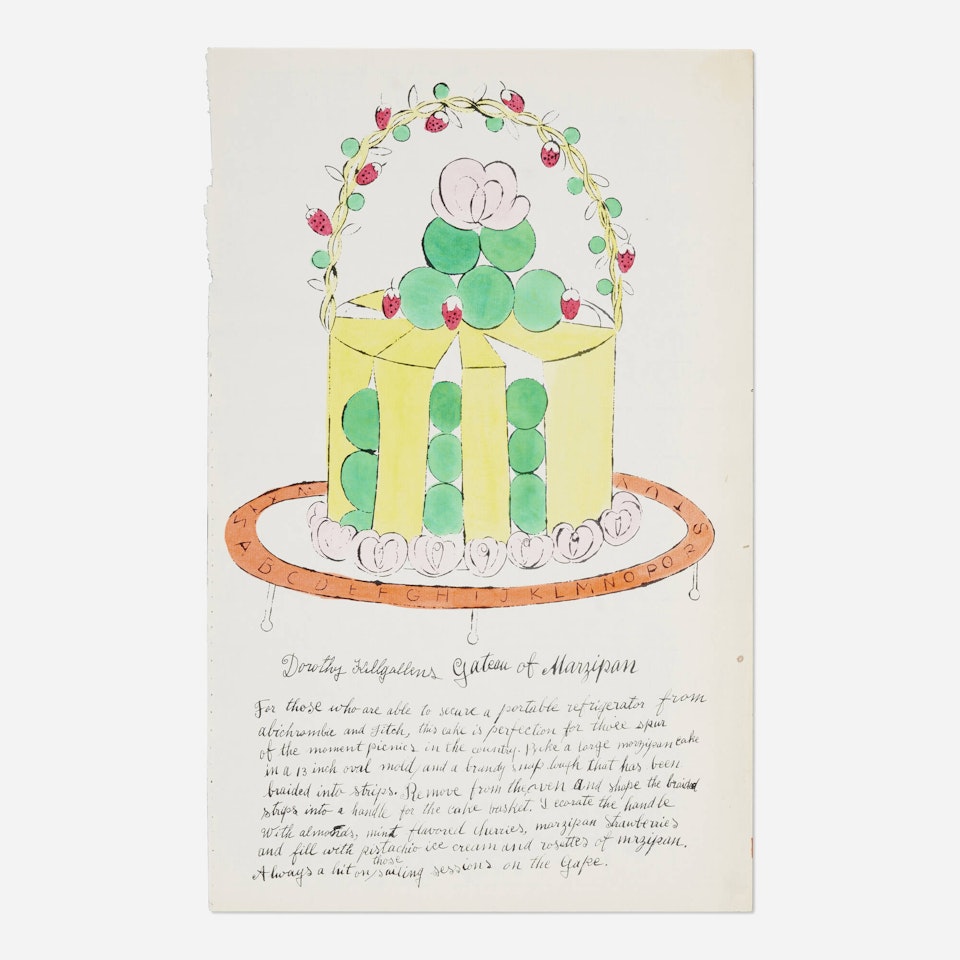 W X Y Z
S T U V
A B C D E F G H I J K L M N O P Q R S
Dorothy Killgallens Gateau of Marzipan
For those who are able to secure a portable refrigerator from
abichrombie and Fitch, this cake is perfection for those spur
of the moment picnics in the country. Bake a large marzipan cake
in a 13 inch oval mold, and a brandy snap dough that has been
braided into strips. Remove from the oven and shape the braided
strips into a handle for the cake basket. Decorate the handle
With almonds, mint flavored cherries, marzipan strawberries
and fill with pistachio ice cream and rosettes of mrzipan.
Always a hit on those sailing sessions on the Gape.